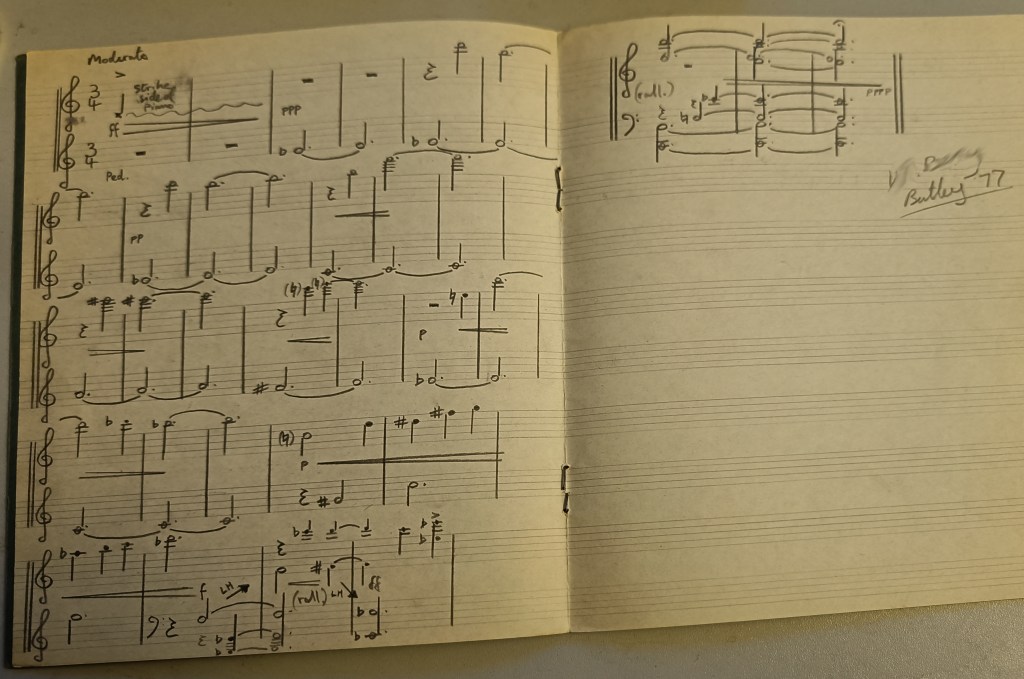 Moderato
3
4
Strike
side of
Piano
ff
ppp
3
4
Ped.
pp
p
p
f
LH
(roll)
LH
ff
(roll.)
pppp
Butley '77